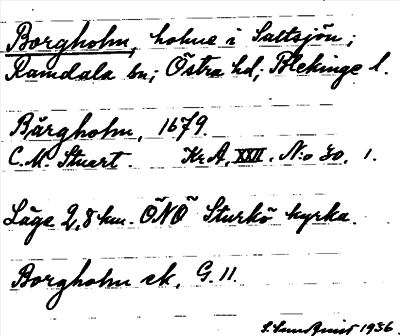 Borgholm, holme i Saltsjön;
Ramdala sn; Östra hd; Blekinge l.
Bårgholm, 1679.
C. M. Stuart. Kr. A. XXII. N:o 30. 1.
Läge 2,8 km. ÖNÖ Sturkö kyrka.
Borgholm ek. G. 11.
1936.